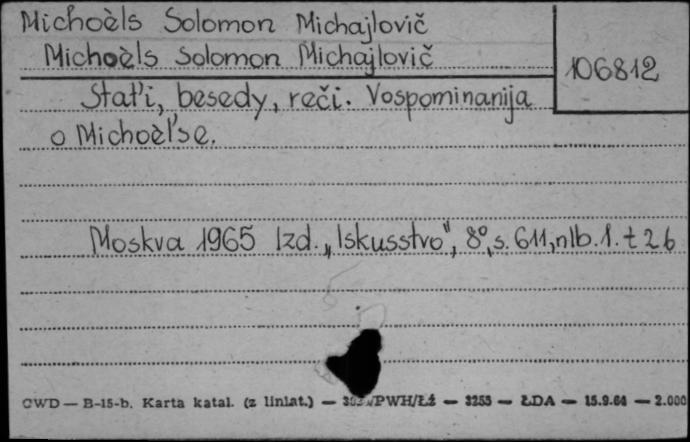 Michoèls Solomon Michajlovič
Michoèls Solomon Michajlovič
106812
Stat'i, besedy, reči. Vospominanija
o Michoèl'se.
Moskva 1965 Izd. „Iskusstvo", 8°, s. 611, nlb. 1. t 26
CWD — B-15-b. Karta katal. (z liniat.) — /PWH/Łź — 3255 — ŁDA — 15.9.64 — 2.000